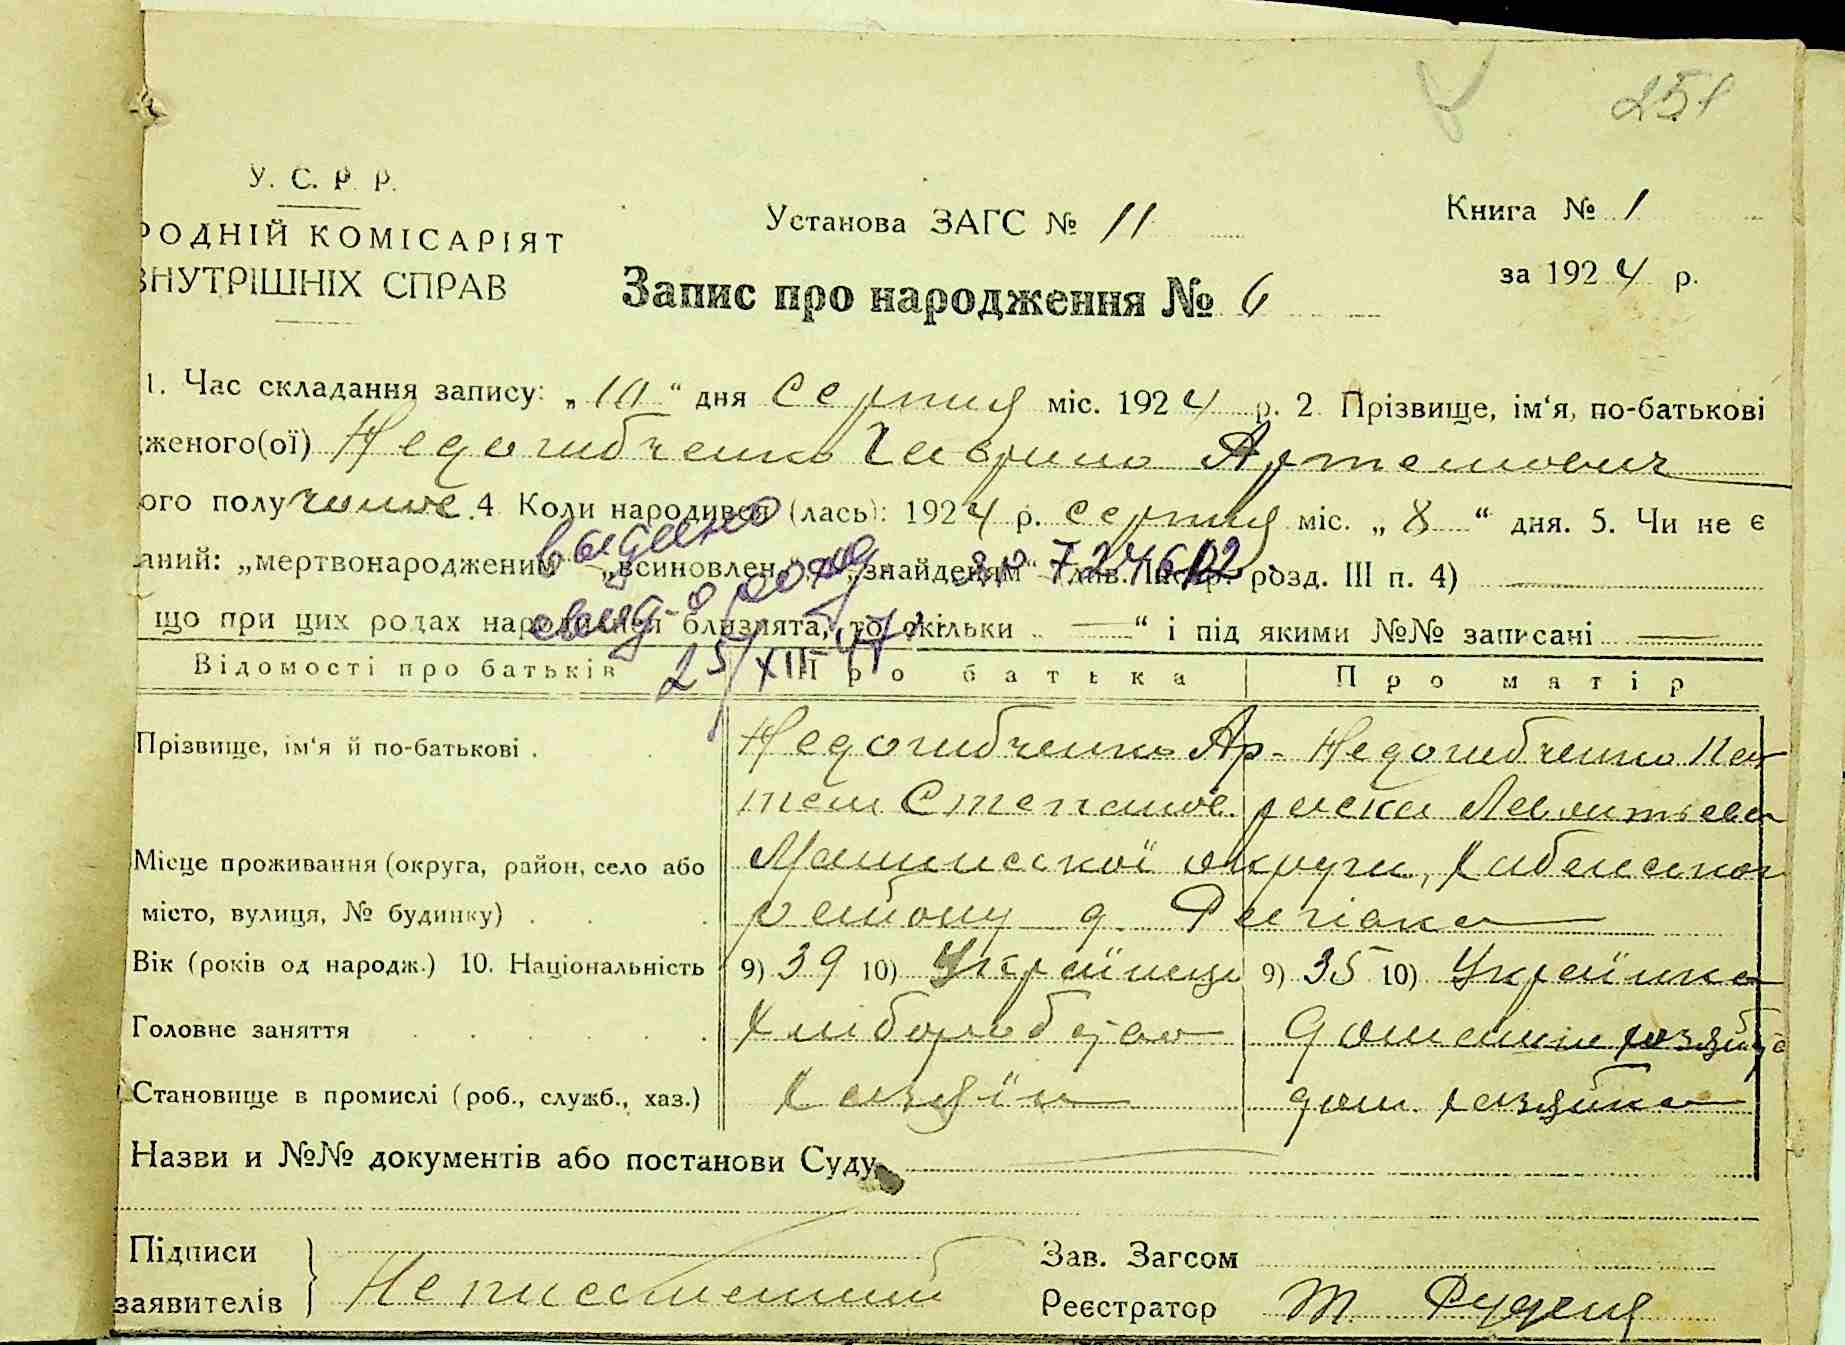 251
У. С. Р. Р.
РОДНІЙ КОМІСАРІЯТ
ВНУТРІШНІХ СПРАВ
Установа ЗАГС № 11
Книга № 1
за 1924 р.
Запис про народження № 6
1. Час складання запису: „10“ дня серпня міс. 1924 р. 2 Прізвище, ім‘я, по-батькові
женого(ої) Недогибченко Гаврило Артемович
ого полу чолов. 4 Коли народився (лась): 1924 р. серпня міс. „8“ дня. 5. Чи не є
аний: „мертвонародженим“ „всиновлен.“, „знайденим“ (див. Інстр. розд. III п. 4) —
видано
свид-о рожд. 724602
25/XII 47
що при цих родах народилися близнята, то скільки „—“ і під якими №№ записані —
Відомості про батьків Про батька Про матір
Прізвище, ім'я й по-батькові . Недогибченко Ар- Недогибченко Па
тем Степанов. раска Леонтьева
Місце проживання (округа, район, село або округи,
місто, вулиця, № будинку) . . району
Вік (років од народж.) 10. Національність 9) 39 10) Українець 9) 35 10) Українка
Головне заняття . . . . . Хліборобство Домашнє
Становище в промислі (роб., служб., хаз.) Хазяїн дом. хазяйка
Назви и №№ документів або постанови Суду —
Підписи
заявителів } Неписьменний
Зав. Загсом
Реєстратор